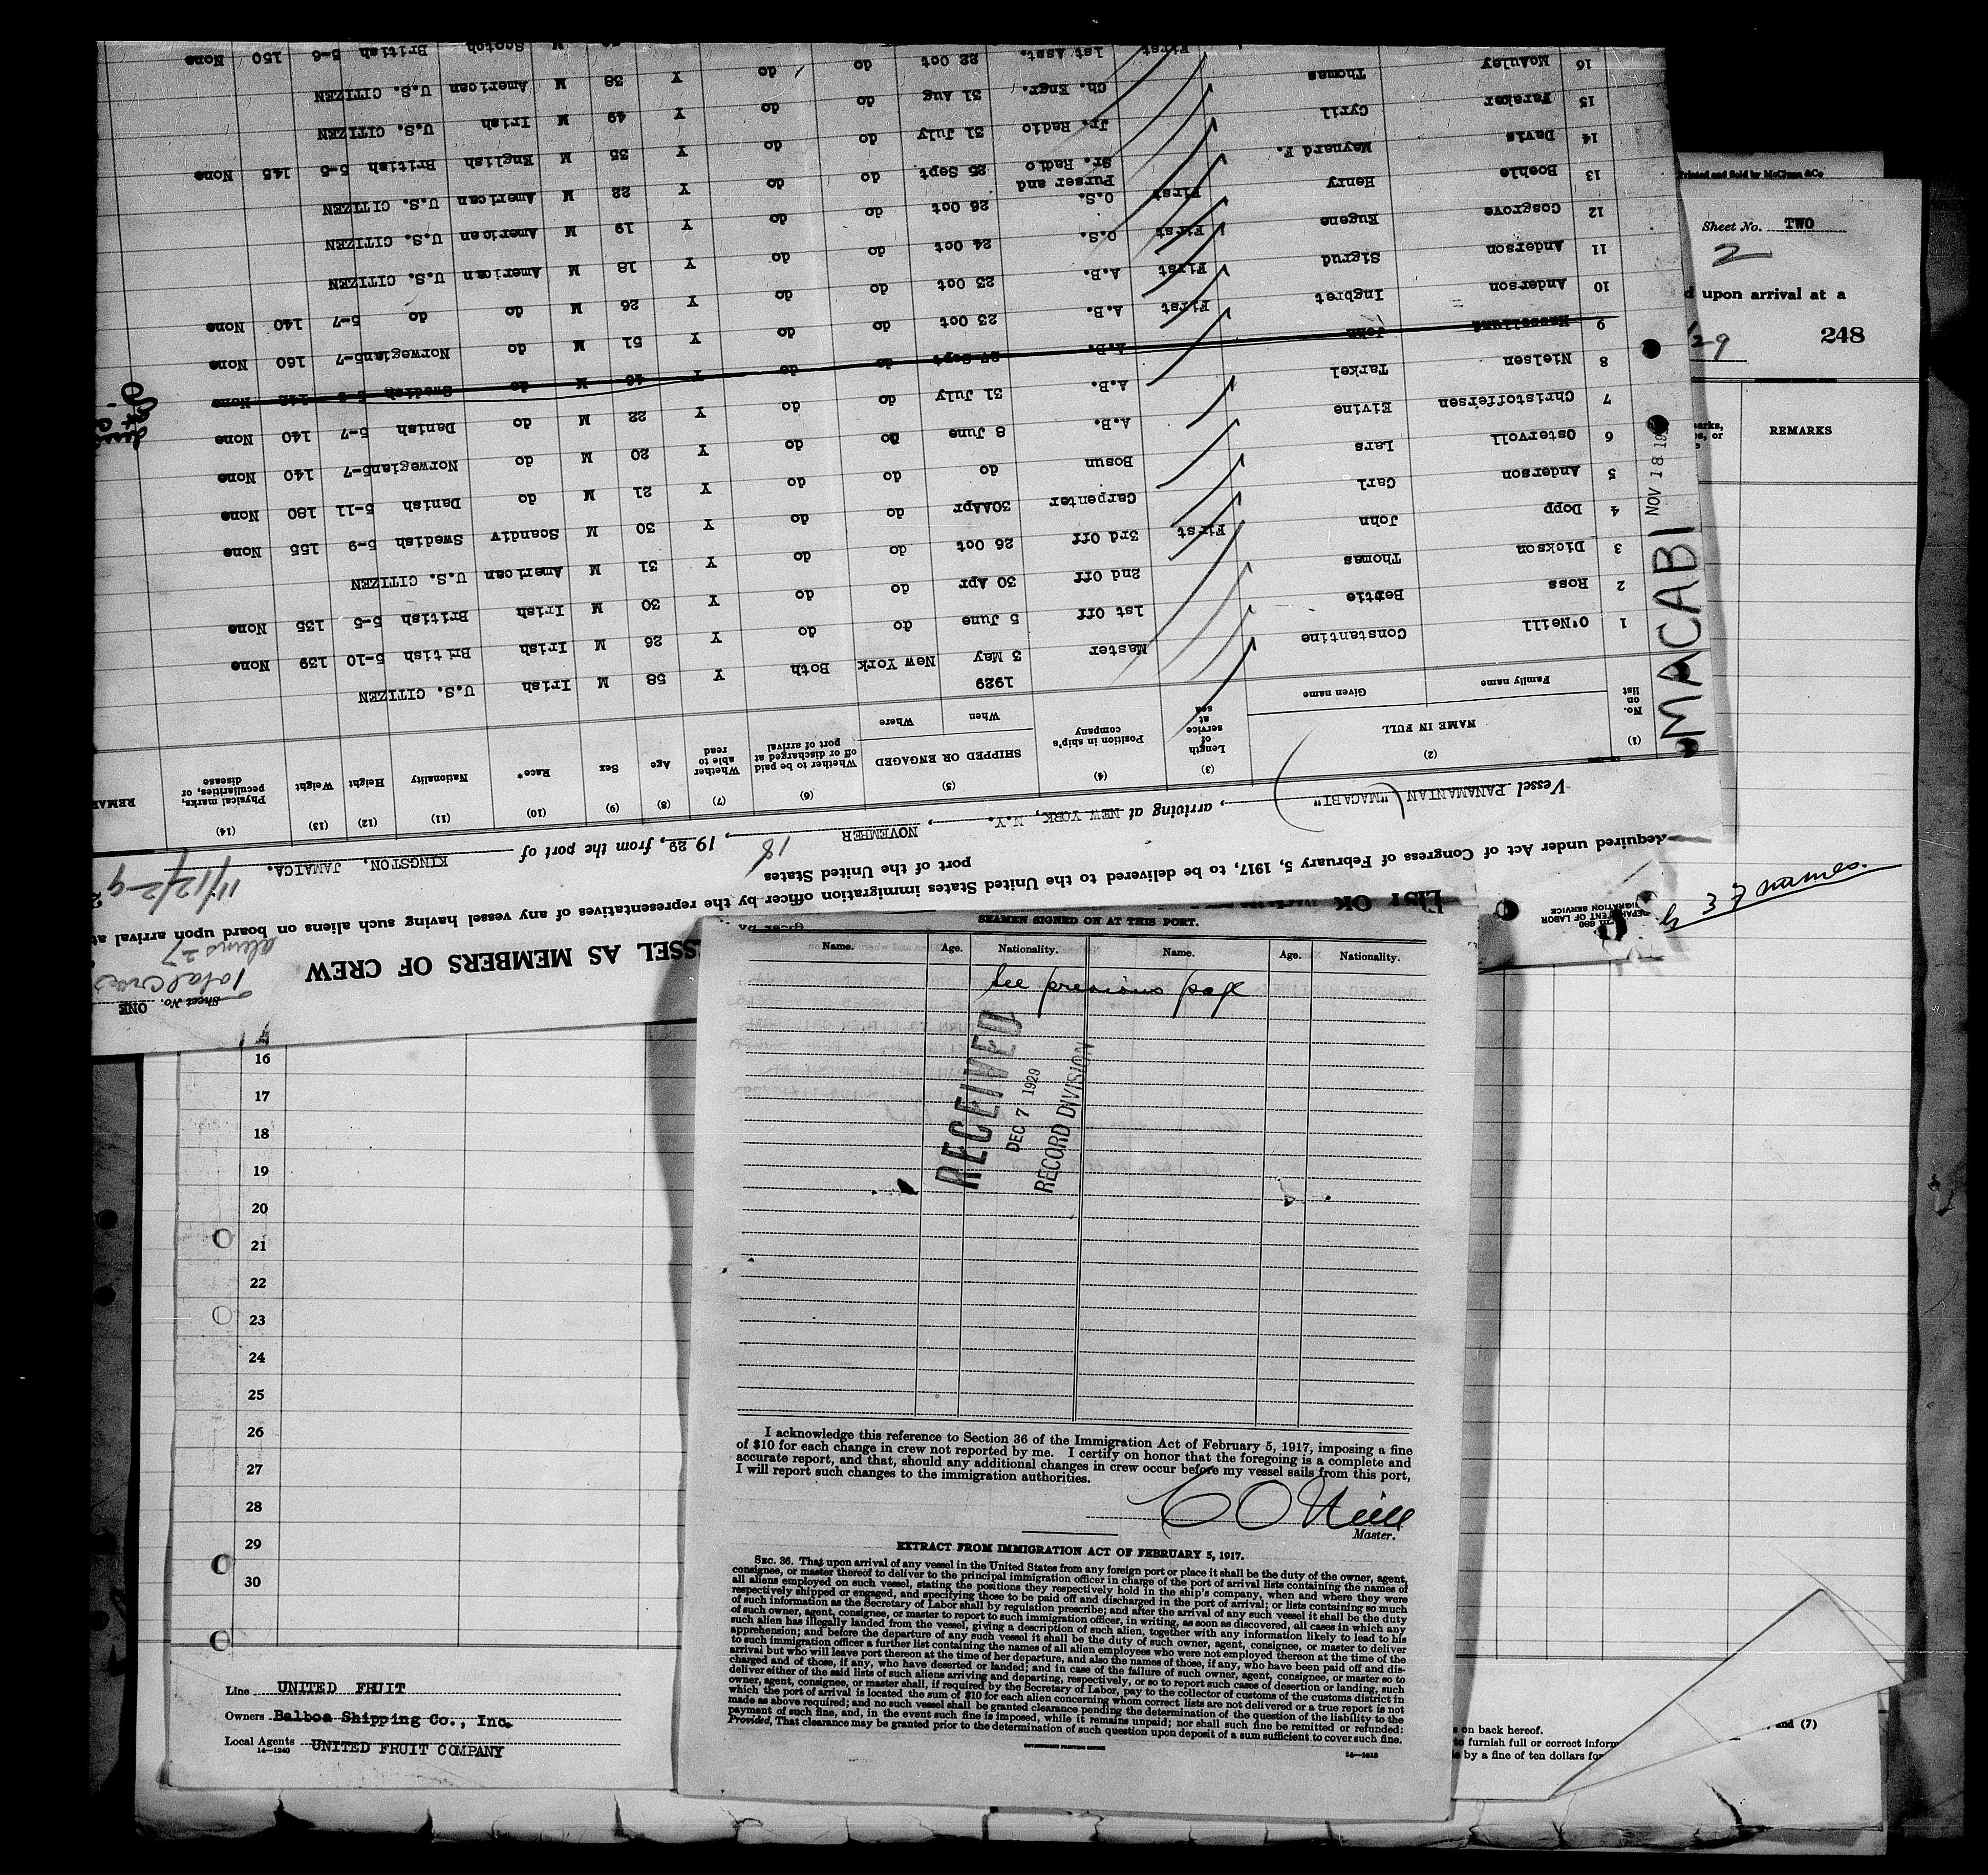 Sheet No. ONE
Total Crew
aliens 27
SSEL AS MEMBERS OF CREW
LIST OR
Required under Act of Congress of February 5, 1917, to be delivered to the United States immigration officer by the representatives of any vessel having such aliens on board upon arrival at
port of the United States
11/12/29
Vessel PANAMANIAN "MACABI", arriving at NEW YORK, N.Y., NOVEMBER 18, 1929, from the port of KINGSTON, JAMAICA.
(1) (2) (3) (4) (5) (6) (7) (8) (9) (10) (11) (12) (13) (14)
No. on list NAME IN FULL Length of service at sea Position in ship's company SHIPPED OR ENGAGED Whether to be paid off or discharged at port of arrival Whether able to read Age Sex Race* Nationality Height Weight Physical marks, peculiarities, or disease REMAR
Family name Given name When Where
1929
1 O'Neill Constantine Master 3 May New York Both Y 58 M Irish U.S. CITIZEN
2 Ross Bertie 1st Off 5 June do do Y 26 M Irish British 5-10 139 None
3 Dickson Thomas 2nd Off 30 Apr do do Y 30 M Irish British 5-5 135 None
4 Dopp John First 3rd Off 26 Oct do do Y 31 M American U.S. CITIZEN
5 Anderson Carl Carpenter 30AApr do do Y 30 M Scandiv Swedish 5-9 155 None
6 Ostervoll Lars Bosun do do do Y 21 M do Danish 5-11 180 None
7 Christoffersen Eivine A.B. 8 June do do Y 20 M do Norwegian5-7 140 None
8 Nielsen Tarkel A.B. 31 July do do Y 22 M do Danish 5-7 140 None
9 John A.B. 27 Sept do do Y 46 M do Swedish None
10 Anderson Ingbret First A.B. 23 Oct do do Y 51 M do Norwegian5-7 160 None
11 Anderson Sigrud First A.B. 23 Oct do do Y 26 M do do 5-7 140 None
12 Cosgrove Eugene First O.S. 24 Oct do do Y 18 M American U.S. CITIZEN
13 Boehle Henry First O.S. 26 Oct do do Y 19 M American U.S. CITIZEN
14 Davis Maynard F. Purser and Sr. Radio 25 Sept do do Y 22 M American U.S. CITIZEN
15 Faraker Cyril Jr. Radio 31 July do do Y 35 M English British 5-5 145 None
16 McAuley Thomas Ch. Engr. 31 Aug do do Y 49 M Irish U.S. CITIZEN
First 1st Asst. 22 Oct do do Y 38 M American U.S. CITIZEN
M Scotch British 5-6 150 None
MACABI
NOV 18 19
Printed and Sold by McClunn & Co
Sheet No. TWO
2
d upon arrival at a
29
248
arks,
es, or
REMARKS
37 names.
680
DEPARTMENT OF LABOR
IGRATION SERVICE
SEAMEN SIGNED ON AT THIS PORT.
Name. Age. Nationality. Name. Age. Nationality.
See previous page
RECEIVED
DEC 7 1929
RECORD DIVISION
I acknowledge this reference to Section 36 of the Immigration Act of February 5, 1917, imposing a fine
of $10 for each change in crew not reported by me. I certify on honor that the foregoing is a complete and
accurate report, and that, should any additional changes in crew occur before my vessel sails from this port,
I will report such changes to the immigration authorities.
C O'Neill
Master.
EXTRACT FROM IMMIGRATION ACT OF FEBRUARY 5, 1917.
SEC. 36. That upon arrival of any vessel in the United States from any foreign port or place it shall be the duty of the owner, agent,
consignee, or master thereof to deliver to the principal immigration officer in charge of the port of arrival lists containing the names of
all aliens employed on such vessel, stating the positions they respectively hold in the ship's company, when and where they were
respectively shipped or engaged, and specifying those to be paid off and discharged in the port of arrival; or lists containing so much
of such information as the Secretary of Labor shall by regulation prescribe; and after the arrival of any such vessel it shall be the duty
of such owner, agent, consignee, or master to report to such immigration officer, in writing, as soon as discovered, all cases in which any
such alien has illegally landed from the vessel, giving a description of such alien, together with any information likely to lead to his
apprehension; and before the departure of any such vessel it shall be the duty of such owner, agent, consignee, or master to deliver
to such immigration officer a further list containing the names of all alien employees who were not employed thereon at the time of the
arrival but who will leave port thereon at the time of her departure, and also the names of those, if any, who have been paid off and dis-
charged and of those, if any, who have deserted or landed; and in case of the failure of such owner, agent, consignee, or master so to
deliver either of the said lists of such aliens arriving and departing, respectively, or so to report such cases of desertion or landing, such
owner, agent, consignee, or master shall, if required by the Secretary of Labor, pay to the collector of customs of the customs district in
which the port of arrival is located the sum of $10 for each alien concerning whom correct lists are not delivered or a true report is not
made as above required; and no such vessel shall be granted clearance pending the determination of the question of the liability to the
payment of such fine, and, in the event such fine is imposed, while it remains unpaid; nor shall such fine be remitted or refunded:
Provided, That clearance may be granted prior to the determination of such question upon deposit of a sum sufficient to cover such fine.
GOVERNMENT PRINTING OFFICE
14—1413
16
17
18
19
20
21
22
23
24
25
26
27
28
29
30
Line UNITED FRUIT
Owners Balboa Shipping Co., Inc.
Local Agents UNITED FRUIT COMPANY
14—1240
s on back hereof.
to furnish full or correct inform
e by a fine of ten dollars for
and (7)